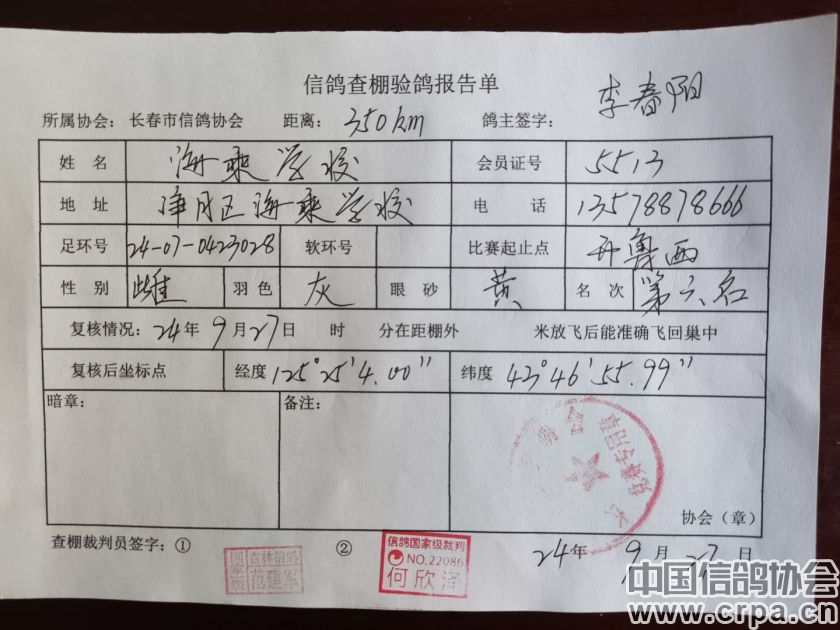 信鸽查棚验鸽报告单
所属协会: 长春市信鸽协会 距离: 350km 鸽主签字: 李春阳
姓 名 海乘学校 会员证号 5513
地 址 净月区海乘学校 电 话 13578878666
足环号 24-07-0423028 软环号 比赛起止点 开鲁西
性 别 雌 羽 色 灰 眼 砂 黄 名 次 第六名
复核情况: 24 年 9 月 27 日 时 分在距棚外 米放飞后能准确飞回巢中
复核后坐标点 经度 125°25'4.00" 纬度 43°46'55.99"
暗章: 备注:
协会（章）
查棚裁判员签字: ① ②
吉林信鸽
范建军
信鸽国家级裁判
NO.22086
何欣泽
24 年 9 月 27 日
中国信鸽协会
www.crpa.cn